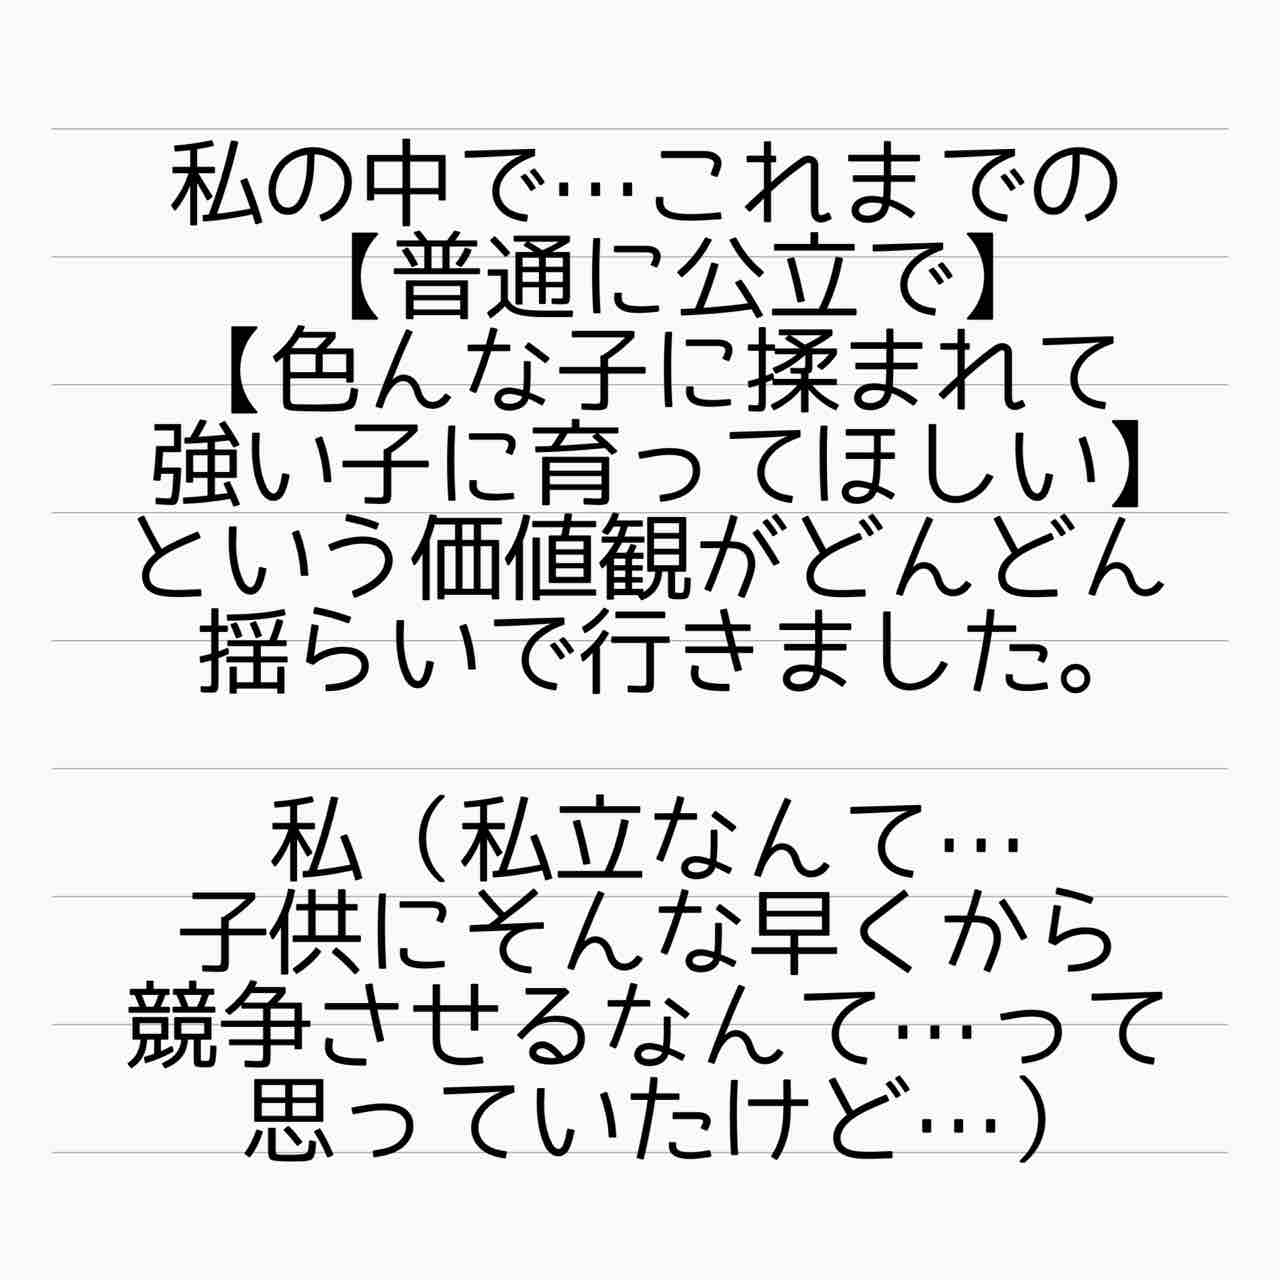 私の中で…これまでの
【普通に公立で】
【色んな子に揉まれて
強い子に育ってほしい】
という価値観がどんどん
揺らいで行きました。
私（私立なんて…
子供にそんな早くから
競争させるなんて…って
思っていたけど…）